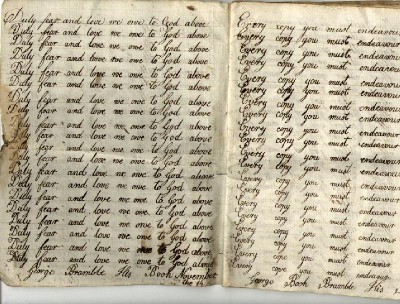 Duly fear and love we owe to God above
Duly fear and love we owe to God above
Duly fear and love we owe to God above
Duly fear and love we owe to God above
Duly fear and love we owe to God above
Duly fear and love we owe to God above
Duly fear and love we owe to God above
Duly fear and love we owe to God above
Duly fear and love we owe to God above
Duly fear and love we owe to God above
Duly fear and love we owe to God above
Duly fear and love we owe to God above
Duly fear and love we owe to God above
Duly fear and love we owe to God above
Duly fear and love we owe to God above
Duly fear and love we owe to God above
Duly fear and love we owe to God above
Duly fear and love we owe to God above
Duly fear and love we owe to God above
George Bramble His Book November
the 14
Every copy you must endeavour
Every copy you must endeavour
Every copy you must endeavour
Every copy you must endeavour
Every copy you must endeavour
Every copy you must endeavour
Every copy you must endeavour
Every copy you must endeavour
Every copy you must endeavour
Every copy you must endeavour
Every copy you must endeavour
Every copy you must endeavour
Every copy you must endeavour
Every copy you must endeavour
Every copy you must endeavour
Every copy you must endeavour
Every copy you must endeavour
Every copy you must endeavour
Every copy you must endeavour
George Bramble His